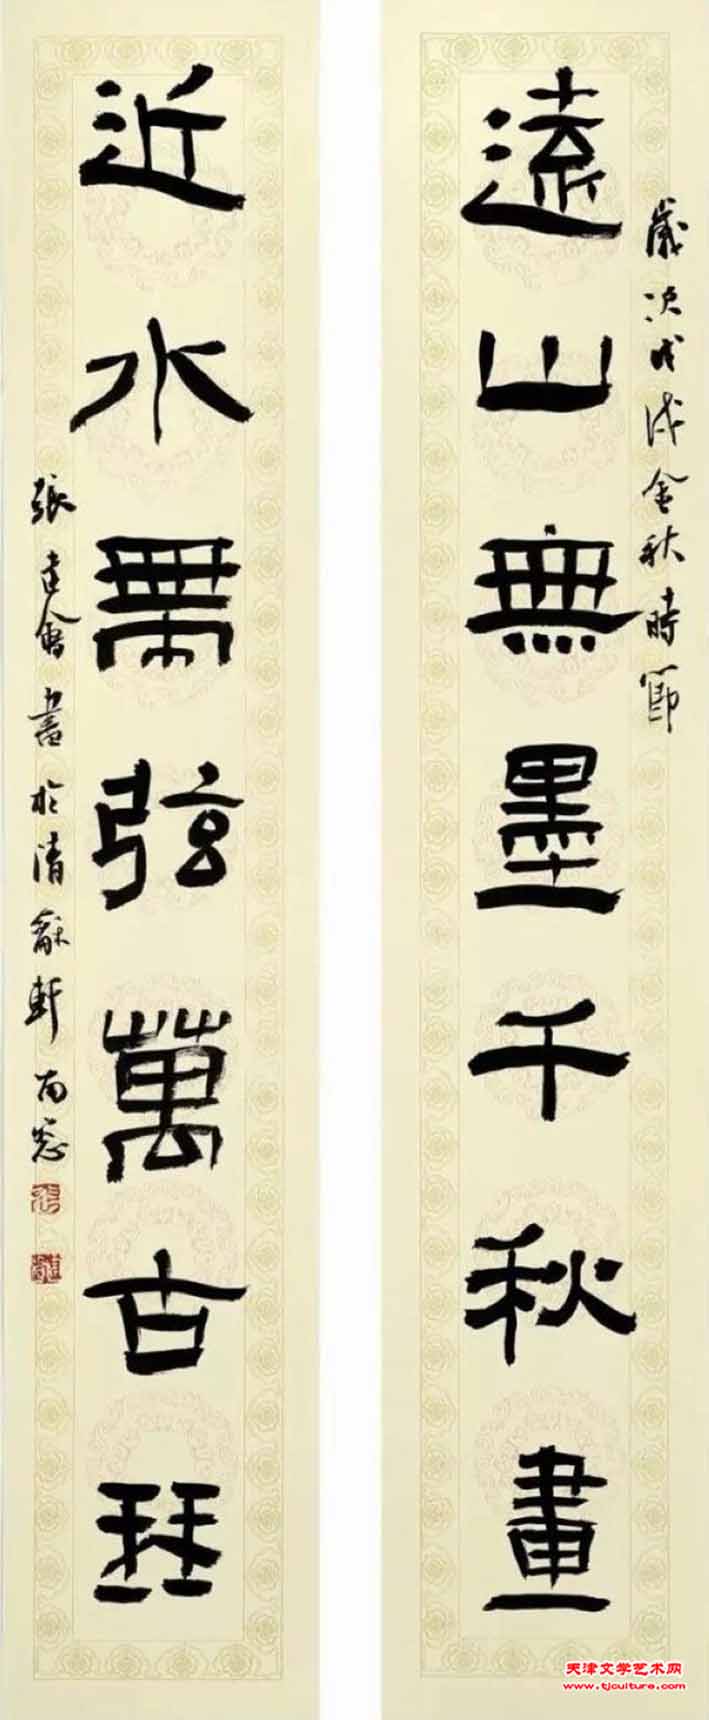 遠山無墨千秋畫
歲次戊戌金秋時節
近水無弦萬古琴
張建會書於清龢軒南窓
天津文学艺术网
www.tjculture.com